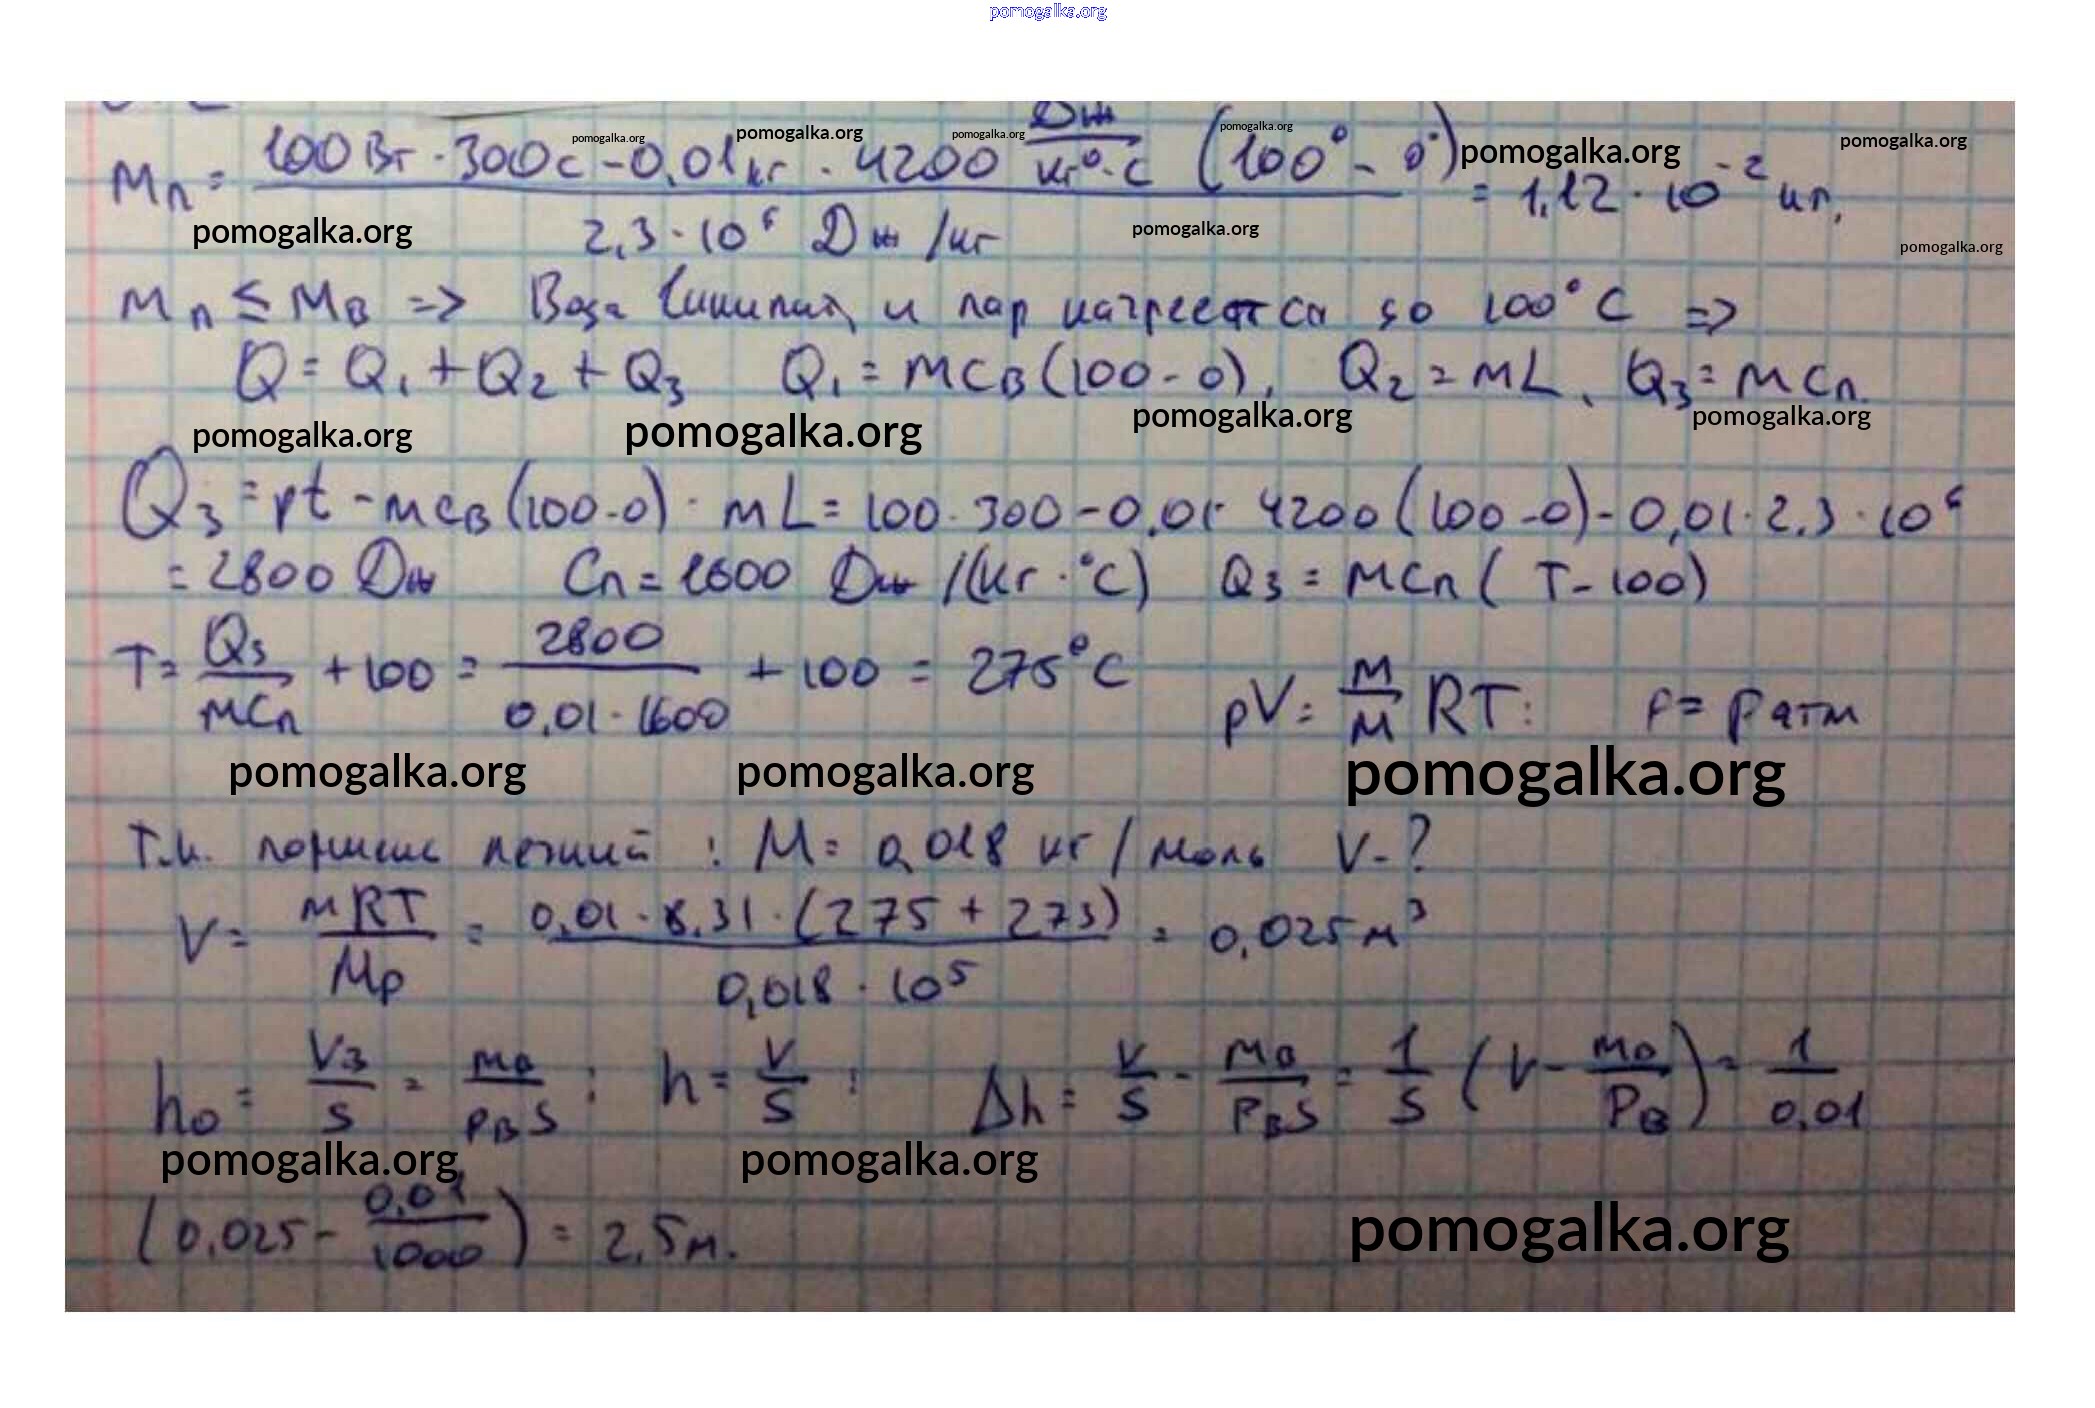 pomogalka.org
Mп = (100 Вт · 300 с - 0,01 кг · 4200 Дж/кг°·С (100° - 0°)) / (2,3 · 10⁶ Дж/кг) = 1,12 · 10⁻² кг,
pomogalka.org pomogalka.org pomogalka.org pomogalka.org pomogalka.org pomogalka.org
pomogalka.org pomogalka.org pomogalka.org
Mп ≤ Mв => Вода и пар нагреется до 100°С =>
Q = Q₁ + Q₂ + Q₃ Q₁ = mcв(100 - 0), Q₂ = mL, Q₃ = mcп.
pomogalka.org pomogalka.org pomogalka.org pomogalka.org
Q₃ = pt - mcв(100-0) · mL = 100 · 300 - 0,01 · 4200(100-0) - 0,01 · 2,3 · 10⁶
= 2800 Дж Cп = 1600 Дж/(кг · °С) Q₃ = mcп(T - 100)
T = Q₃/mcп + 100 = 2800/(0,01 · 1600) + 100 = 275°С pV = m/M RT: p = pатм
pomogalka.org pomogalka.org pomogalka.org
Т.к. поршень легкий : M = 0,018 кг/моль V - ?
V = mRT/Mp = (0,01 · 8,31 · (275 + 273)) / (0,018 · 10⁵) = 0,025 м³
h₀ = Vв/S = mв/ρвS ; h = V/S ; Δh = V/S - mв/ρвS = 1/S (V - mв/ρв) = 1/0,01
pomogalka.org pomogalka.org
(0,025 - 0,01/1000) = 2,5 м.
pomogalka.org